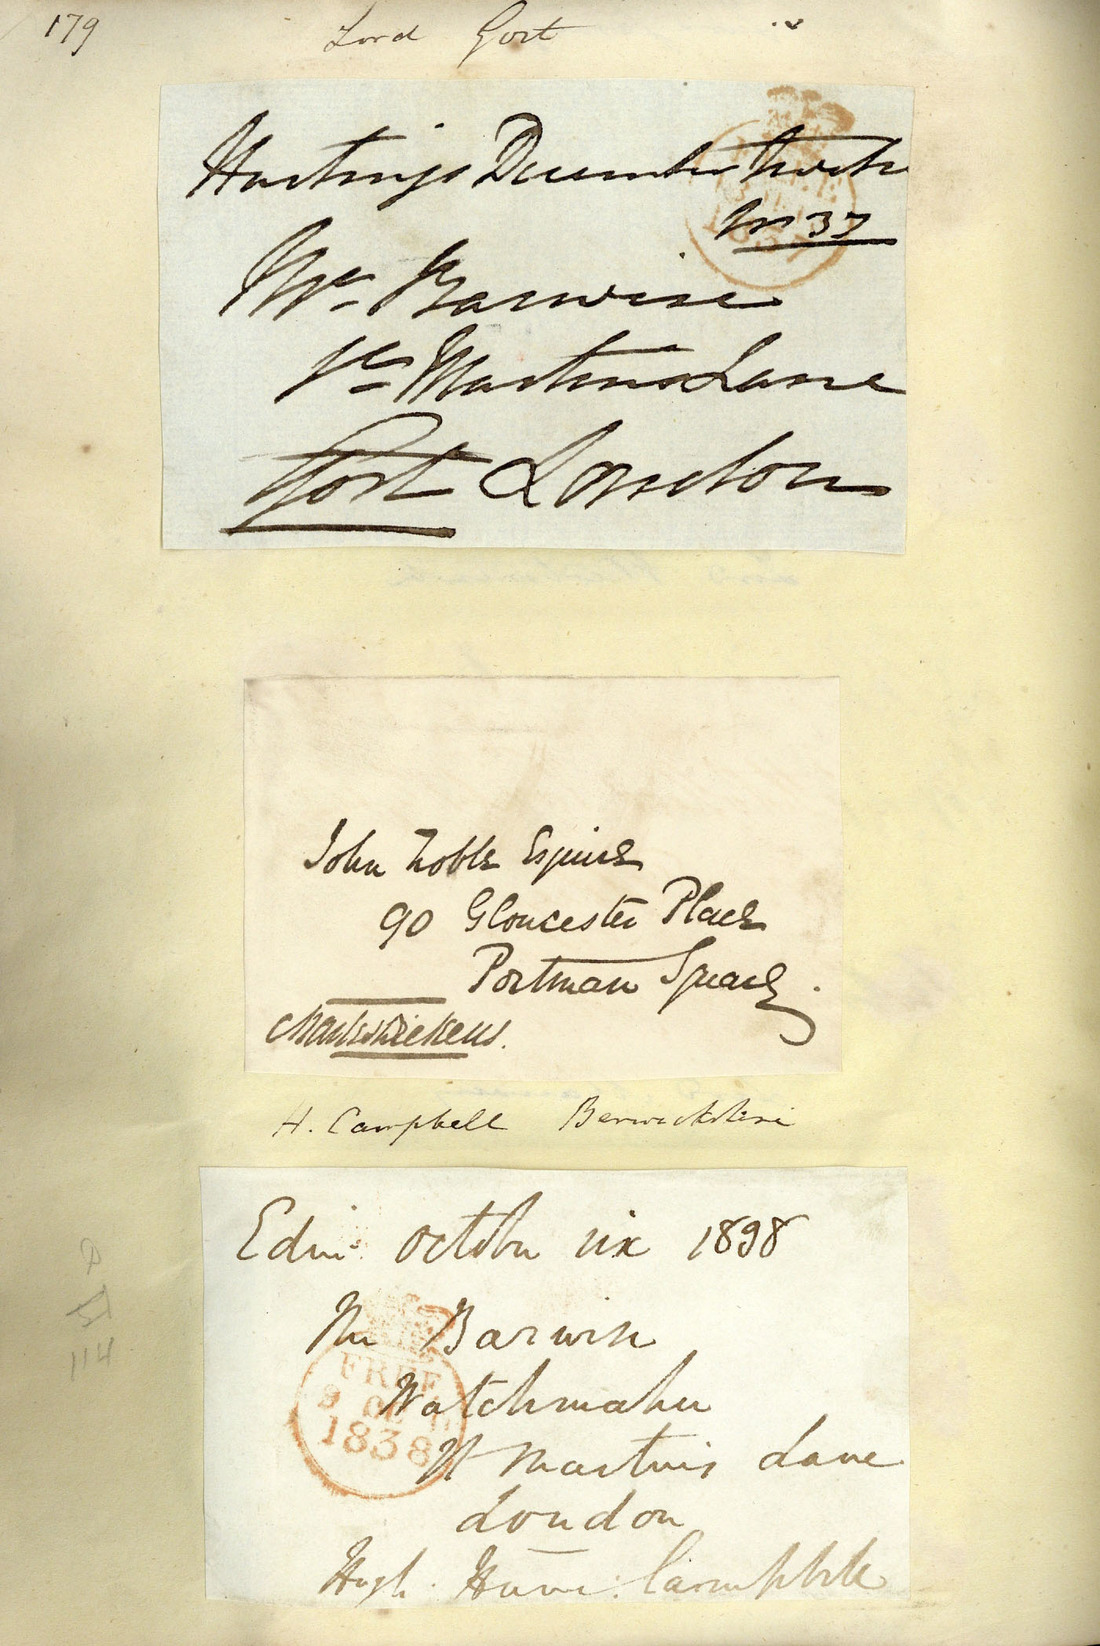 179
Lord Gort
Hastings December twelve
1837
Mr. Barwise
St. Martins Lane
Gort London
John Noble Esquire
90 Gloucester Place
Portman Square.
Charles Dickens.
H. Campbell Berwickshire
Edinr. October six 1838
Mr Barwise
FREE
9 OC 9
1838
Watchmaker
St Martins Lane
London
Hugh Hume Campbell
114